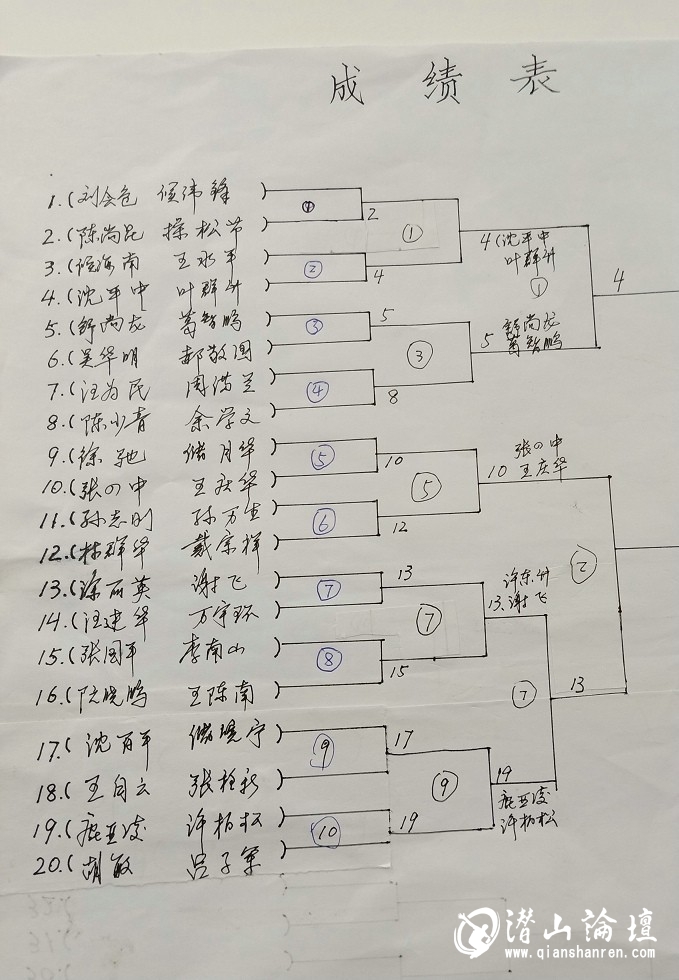 成绩表
1.(刘会仓 侯伟锋)
2.(陈尚昆 操松节)
3.(侯海南 王水平)
4.(沈平中 叶群升)
5.(舒尚龙 葛智鹏)
6.(吴华明 郝敬国)
7.(汪为民 周满兰)
8.(陈少青 余学文)
9.(徐驰 储月华)
10.(张の中 王庆华)
11.(孙志刚 孙万生)
12.(林群华 戴宗祥)
13.(英 谢飞)
14.(汪建华 万宇环)
15.(张国平 李南山)
16.(阮晓鹏 王陈南)
17.(沈百平 储晓宁)
18.(王白云 张拴新)
19.(鹿亚凌 许柏松)
20.(胡敏 吕子军)
① 2
② 4
③ 5
④ 8
⑤ 10
⑥ 12
⑦ 13
⑧ 15
⑨ 17
⑩ 19
① 4(沈平中 叶群升
③ 5 舒尚龙 葛智鹏
⑤ 10 张の中 王庆华
⑦ 13. 许东升 谢飞
⑨ 19 鹿亚凌 许柏松
① 4
⑦ 13
②
潜山論壇
www.qianshanren.com